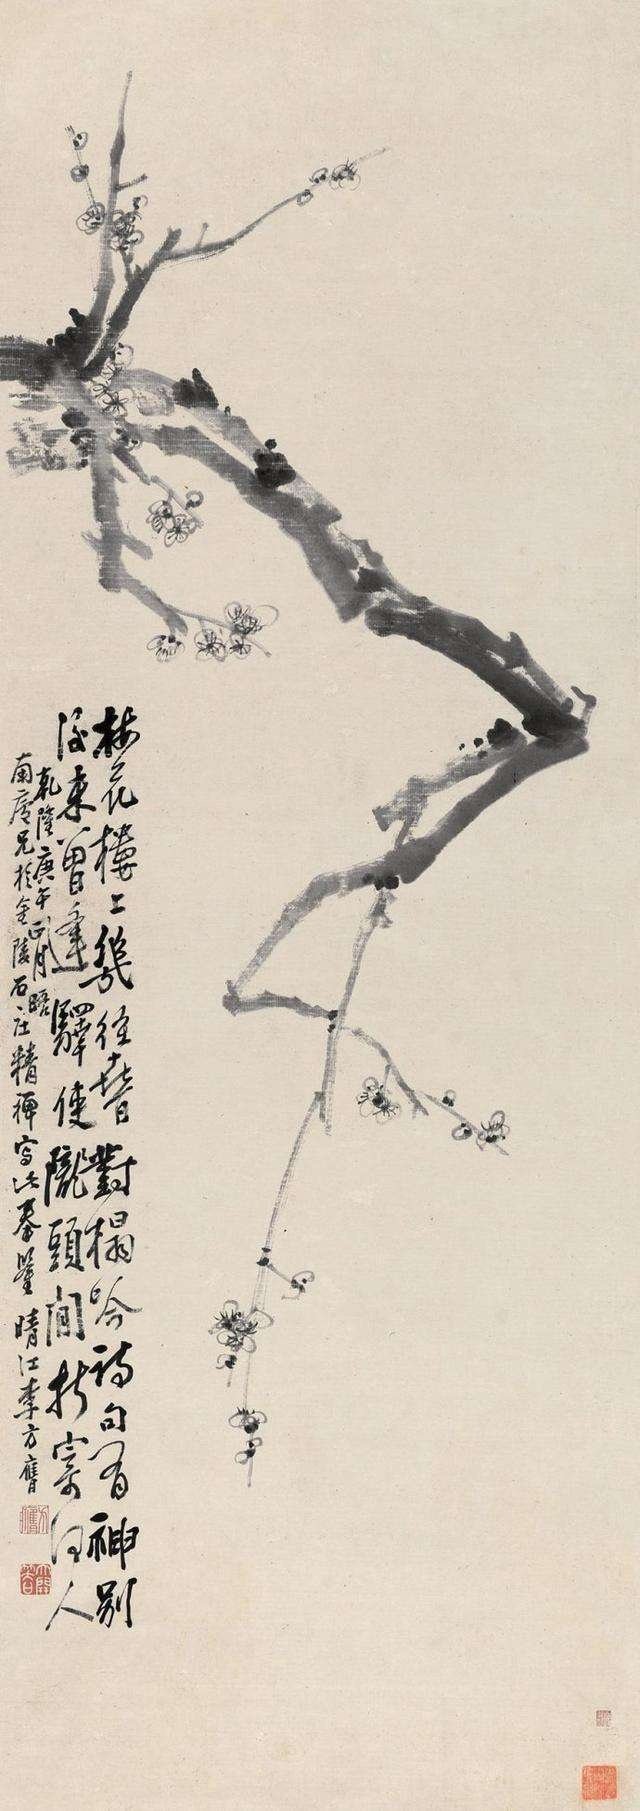 梅花樓上幾經春對榻吟詩句有神別
後來曾逢驛使隴頭閒折寄何人
乾隆庚午正月晤
南兄於金陵石莊精禪寫此奉鑒晴江李方膺